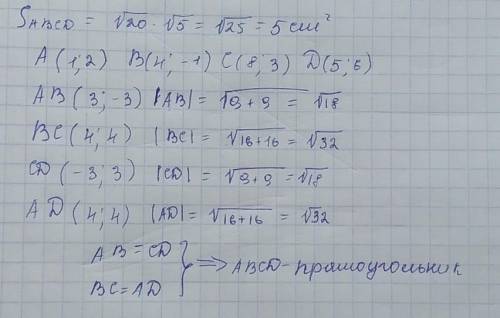 S_ABCD = √20 · √5 = √25 = 5 cm²
A (1; 2) B(4; -1) C(8; 3) D(5; 6)
AB (3; -3) |AB| = √9+9 = √18
BC (4; 4) |BC| = √16+16 = √32
CD (-3; 3) |CD| = √9+9 = √18
AD (4; 4) |AD| = √16+16 = √32
AB = CD
BC = AD } ⇒ ABCD - прямоугольник